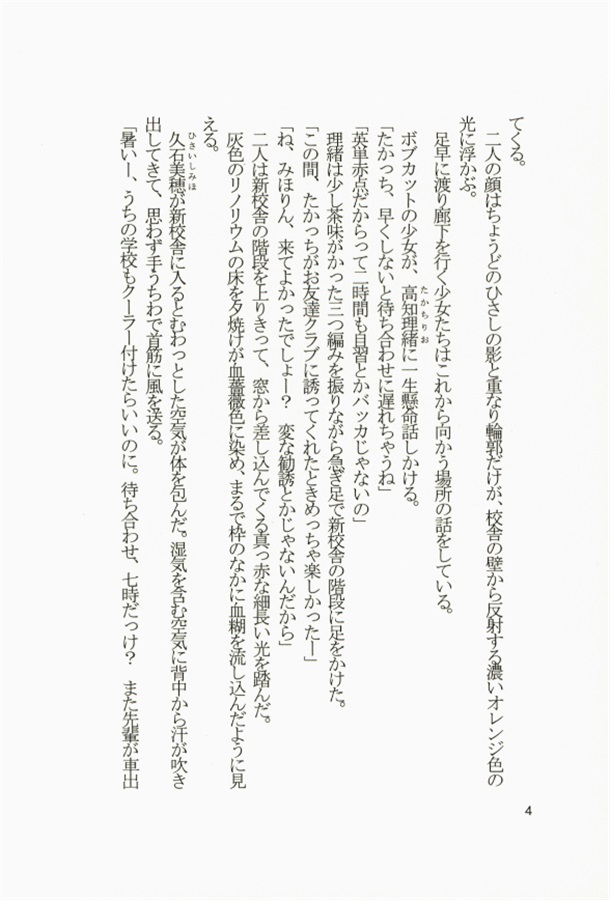 てくる。
二人の顔はちょうどのひさしの影と重なり輪郭だけが、校舎の壁から反射する濃いオレンジ色の
光に浮かぶ。
足早に渡り廊下を行く少女たちはこれから向かう場所の話をしている。
ボブカットの少女が、高知理緒に一生懸命話しかける。
たかちりお
「たかっち、早くしないと待ち合わせに遅れちゃうね」
「英単赤点だからって二時間も自習とかバッカじゃないの」
理緒は少し茶味がかった三つ編みを振りながら急ぎ足で新校舎の階段に足をかけた。
「この間、たかっちがお友達クラブに誘ってくれたときめっちゃ楽しかったー」
「ね、みほりん、来てよかったでしょー？　変な勧誘とかじゃないんだから」
二人は新校舎の階段を上りきって、窓から差し込んでくる真っ赤な細長い光を踏んだ。
灰色のリノリウムの床を夕焼けが血薔薇色に染め、まるで枠のなかに血糊を流し込んだように見
える。
久石美穂が新校舎に入るとむわっとした空気が体を包んだ。湿気を含む空気に背中から汗が吹き
ひさいしみほ
出してきて、思わず手うちわで首筋に風を送る。
「暑いー、うちの学校もクーラー付けたらいいのに。待ち合わせ、七時だっけ？　また先輩が車出
4